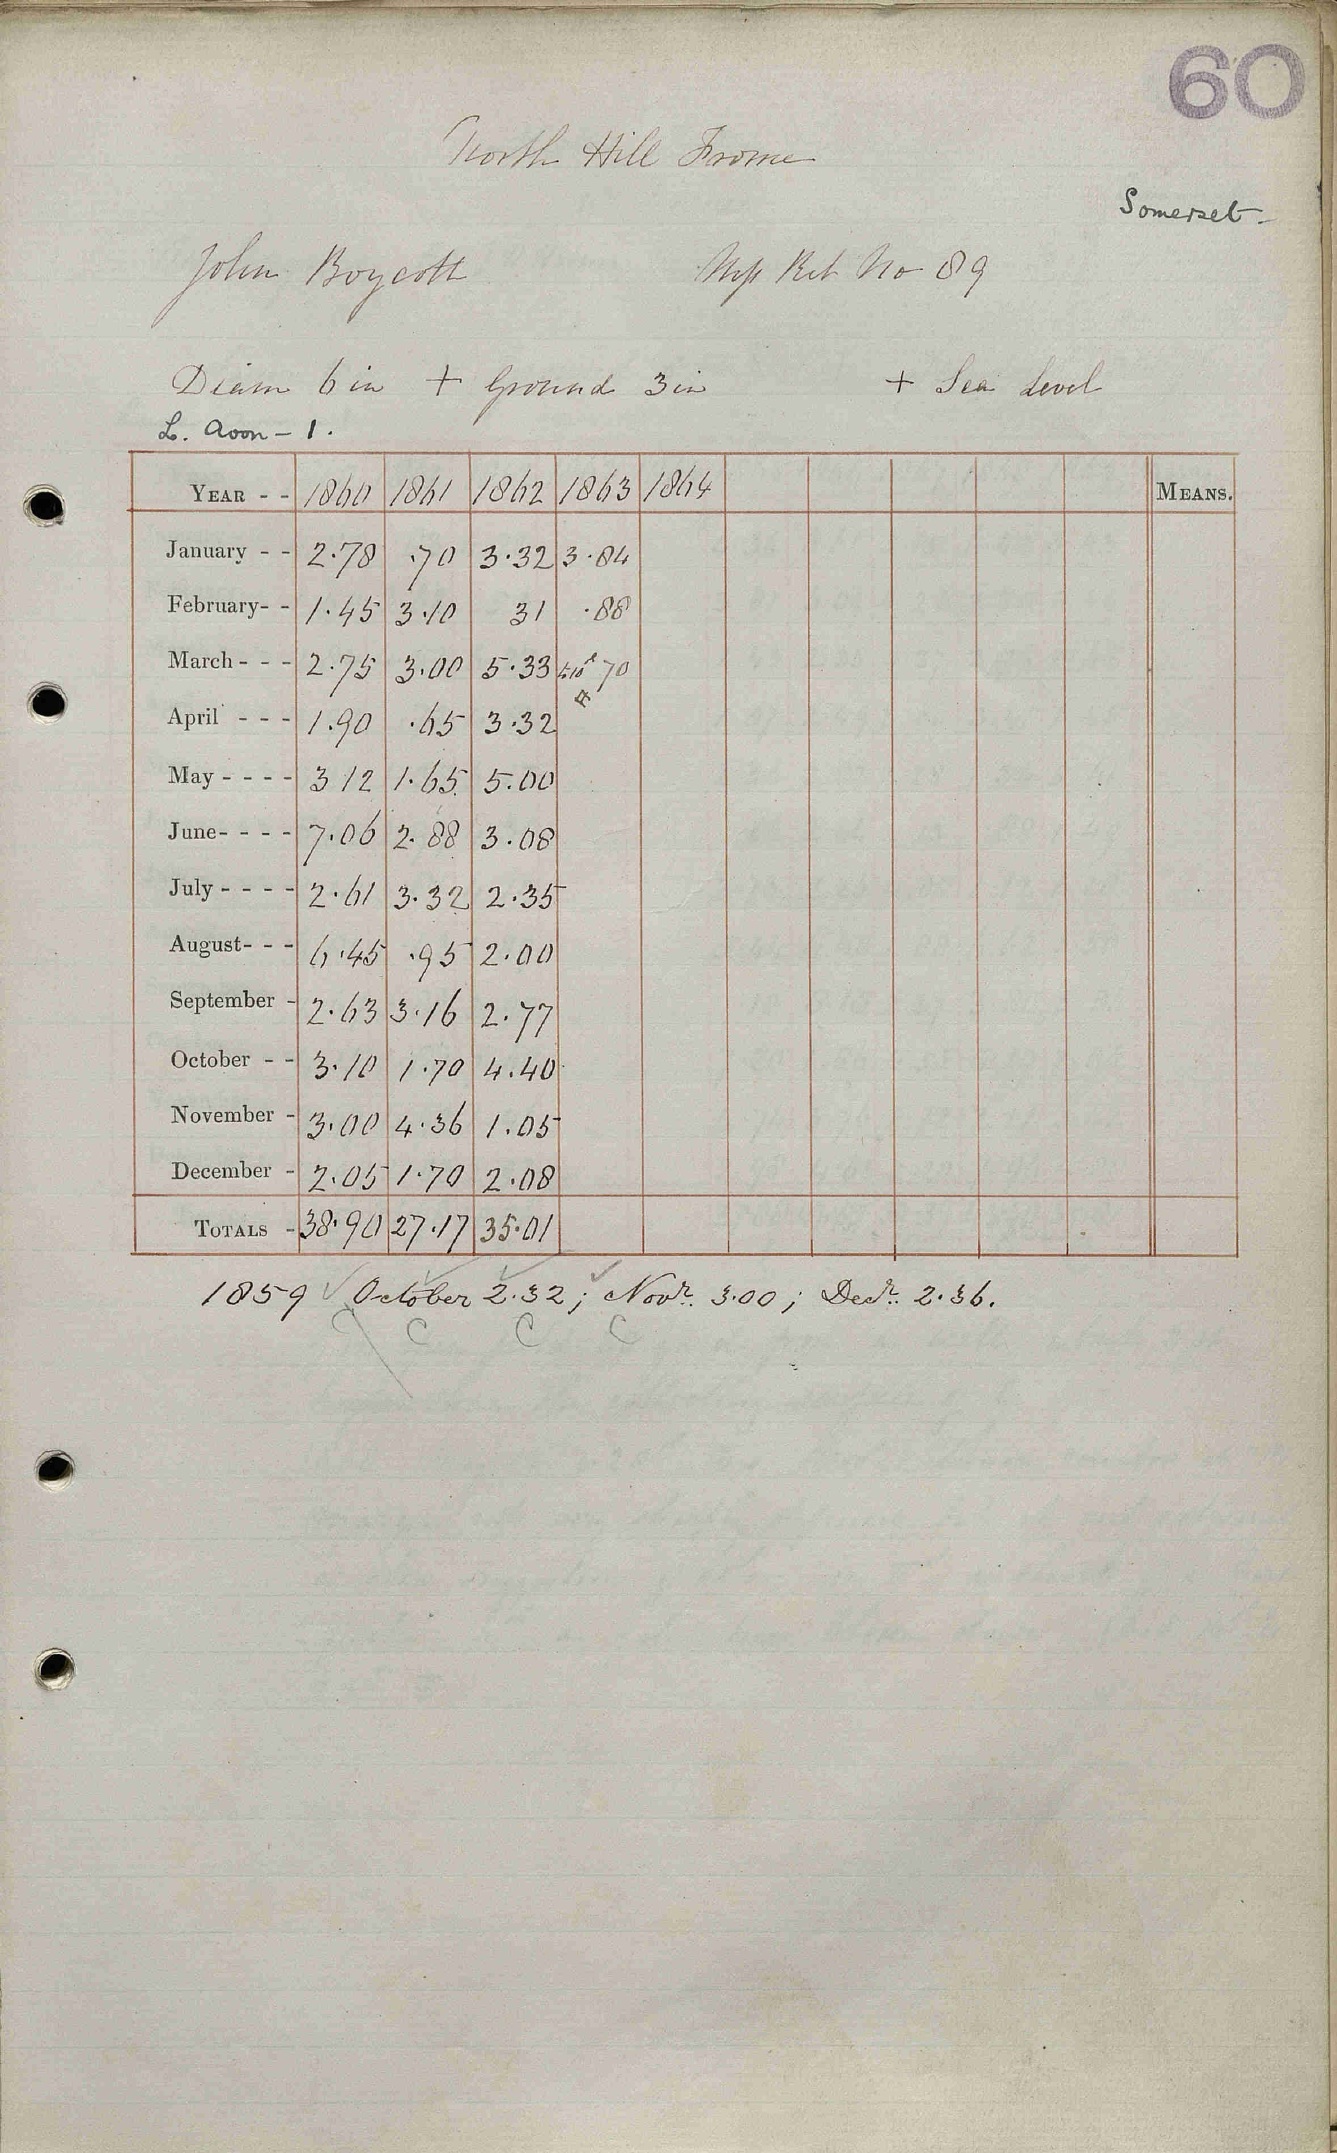 60
North Hill Frome
Somerset
John Boycott Mss Ret No 89
Diam 6 in + Ground 3 in + Sea Level
L. Aoon - 1.
YEAR - - 1860 1861 1862 1863 1864 MEANS.
January - - 2.78 .70 3.32 3.84
February- - 1.45 3.10 31 .88
March - - - 2.75 3.00 5.33 70
April - - - 1.90 .65 3.32
May - - - - 3 12 1.65 5.00
June- - - - 7.06 2.88 3.08
July - - - - 2.61 3.32 2.35
August- - - 6.45 .95 2.00
September - 2.63 3.16 2.77
October - - 3.10 1.70 4.40
November - 3.00 4.36 1.05
December - 2.05 1.70 2.08
TOTALS - 38.90 27.17 35.01
1859 October 2.32; Novr. 3.00; Decr. 2.36.